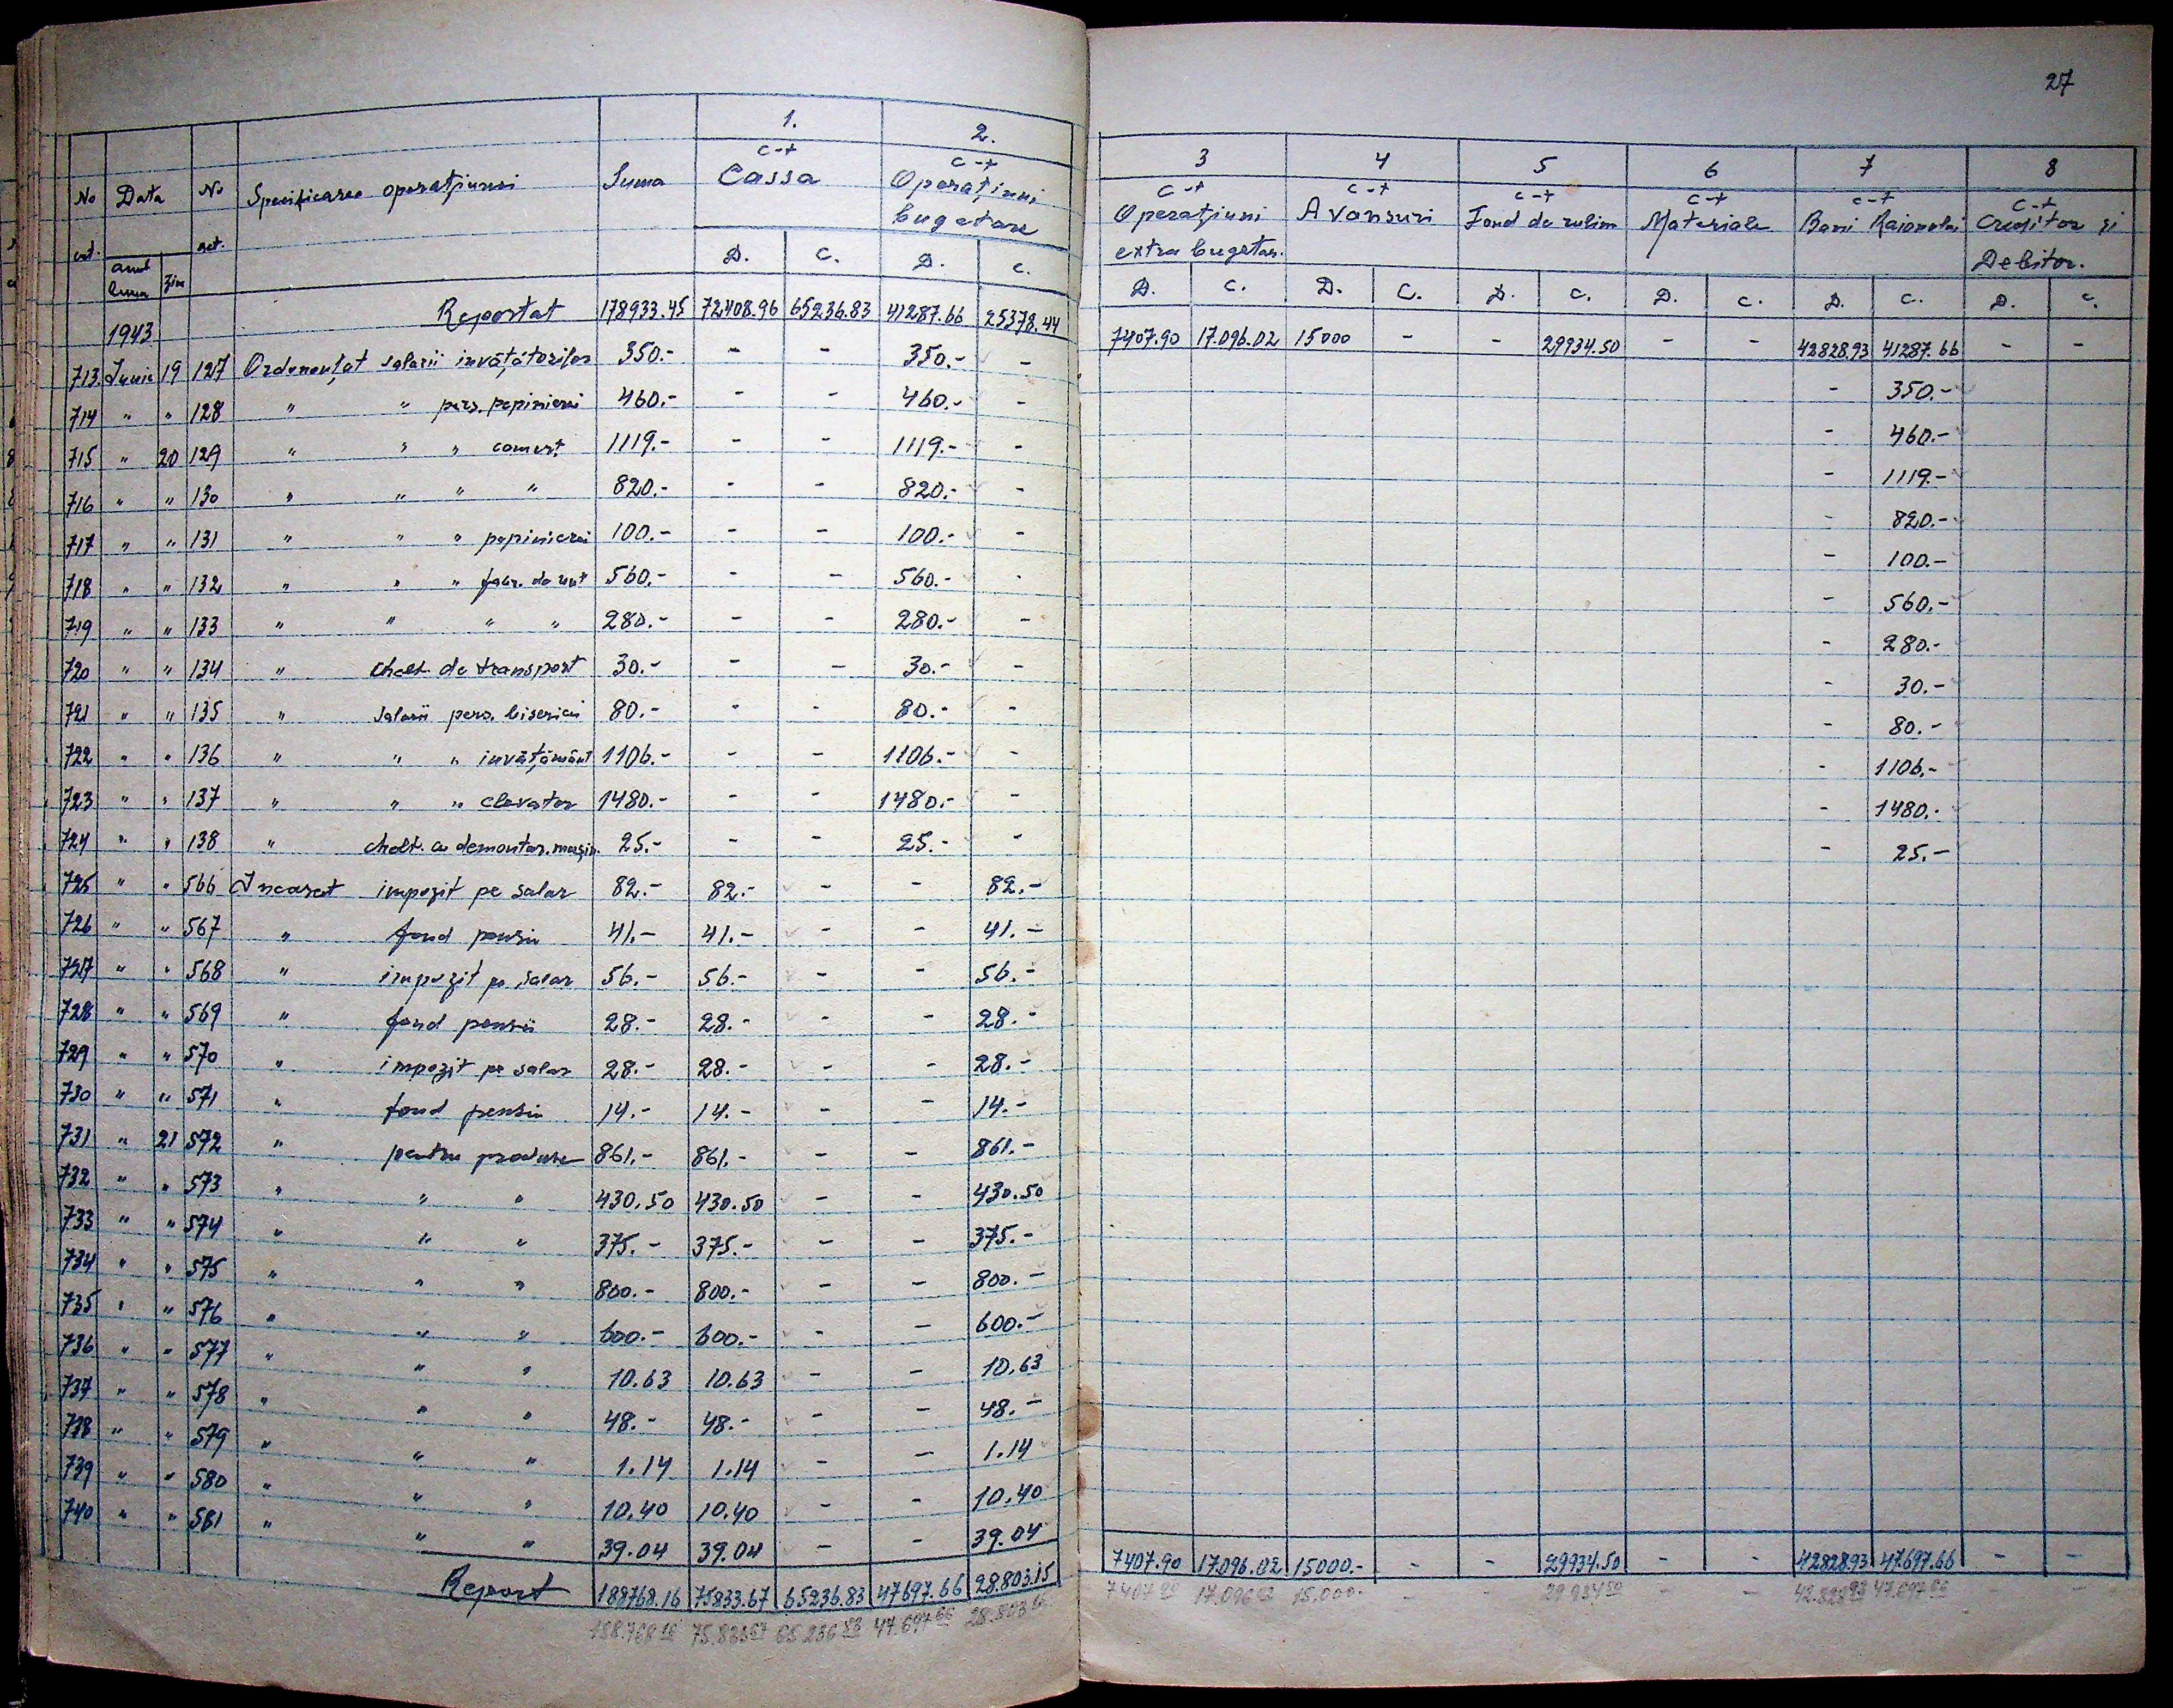 27
1. 2. 3 4 5 6 7 8
c-t c-t c-t c-t c-t c-t c-t c-t
No Data No Specificarea operaţiunii Suma Cassa Operaţiuni Operaţiuni Avansuri Fond de rulim Materiale Banii Raionului Creditor şi
crt. anul luna Zin act. bugetare extra bugetar. Debitor.
D. C. D. C. D. C. D. C. D. C. D. C. D. C. D. C.
Reportat 178933.45 72408.96 65236.83 41287.66 25378.44 7407.90 17.096.02 15000 - - 29934.50 - - 42828.93 41287.66 - -
1943
713. Iunie 19 127 Ordonanţat salarii invăţătorilor 350.- - - 350.- - - 350.-
714 " " 128 " " pers. pepinierei 460.- - - 460.- - - 460.-
715 " 20 129 " " " comert 1119.- - - 1119.- - - 1119.-
716 " " 130 " " " " 820.- - - 820.- - - 820.-
717 " " 131 " " " pepinierei 100.- - - 100.- - - 100.-
718 " " 132 " " " fabr. de unt 560.- - - 560.- - - 560.-
719 " " 133 " " " " 280.- - - 280.- - - 280.-
720 " " 134 " chelt. de transport 30.- - - 30.- - - 30.-
721 " " 135 " salarii pers. bisericii 80.- - - 80.- - - 80.-
722 " " 136 " " " invăţământ 1106.- - - 1106.- - - 1106.-
723 " " 137 " " " elevator 1480.- - - 1480.- - - 1480.-
724 " " 138 " chelt. a demontar. maşin. 25.- - - 25.- - - 25.-
725 " " 566 Incasat impozit pe salar 82.- 82.- - - 82.-
726 " " 567 " fond pensii 41.- 41.- - - 41.-
727 " " 568 " impozit pe salar 56.- 56.- - - 56.-
728 " " 569 " fond pensii 28.- 28.- - - 28.-
729 " " 570 " impozit pe salar 28.- 28.- - - 28.-
730 " " 571 " fond pensii 14.- 14.- - - 14.-
731 " 21 572 " pentru produse 861.- 861.- - - 861.-
732 " " 573 " " " 430.50 430.50 - - 430.50
733 " " 574 " " " 375.- 375.- - - 375.-
734 " " 575 " " " 800.- 800.- - - 800.-
735 " " 576 " " " 600.- 600.- - - 600.-
736 " " 577 " " " 10.63 10.63 - - 10.63
737 " " 578 " " " 48.- 48.- - - 48.-
738 " " 579 " " " 1.14 1.14 - - 1.14
739 " " 580 " " " 10.40 10.40 - - 10.40
740 " " 581 " " " 39.04 39.04 - - 39.04
Report 188768.16 75833.67 65236.83 47697.66 28.803.15 7407.90 17.096.02 15000.- - - 29934.50 - - 42828.93 47.697.66 - -
188.768 16 75.833 67 65.236 83 47.697 66 28.803 15 7407 90 17.096 02 15.000.- - - 29.934 50 - - 42.828 93 47.697 66 - -